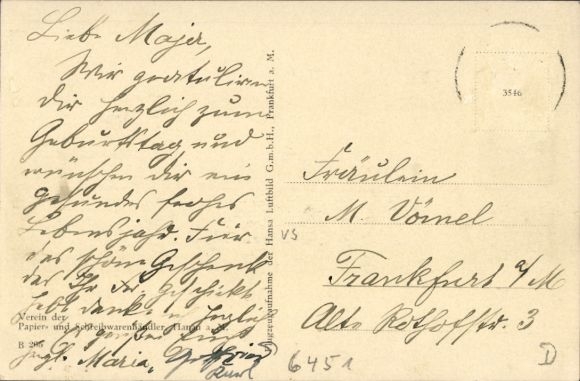 Liebe Maja,
Wir gratulieren
dir herzlich zum
Geburtstag und
wünschen dir ein
gesundes frohes
Lebensjahr. Für
das schöne Geschenk
das Ihr geschickt
habt danken herzlich
Maria,
Verein der
Papier- und Schreibwarenhändler, Hanau a. M.
B 206
Flugzeugaufnahme der Hansa Luftbild G.m.b.H., Frankfurt a. M.
3546
Fräulein
M. Vömel
VS
Frankfurt a/M
Alte Rothofstr. 3
6451
D